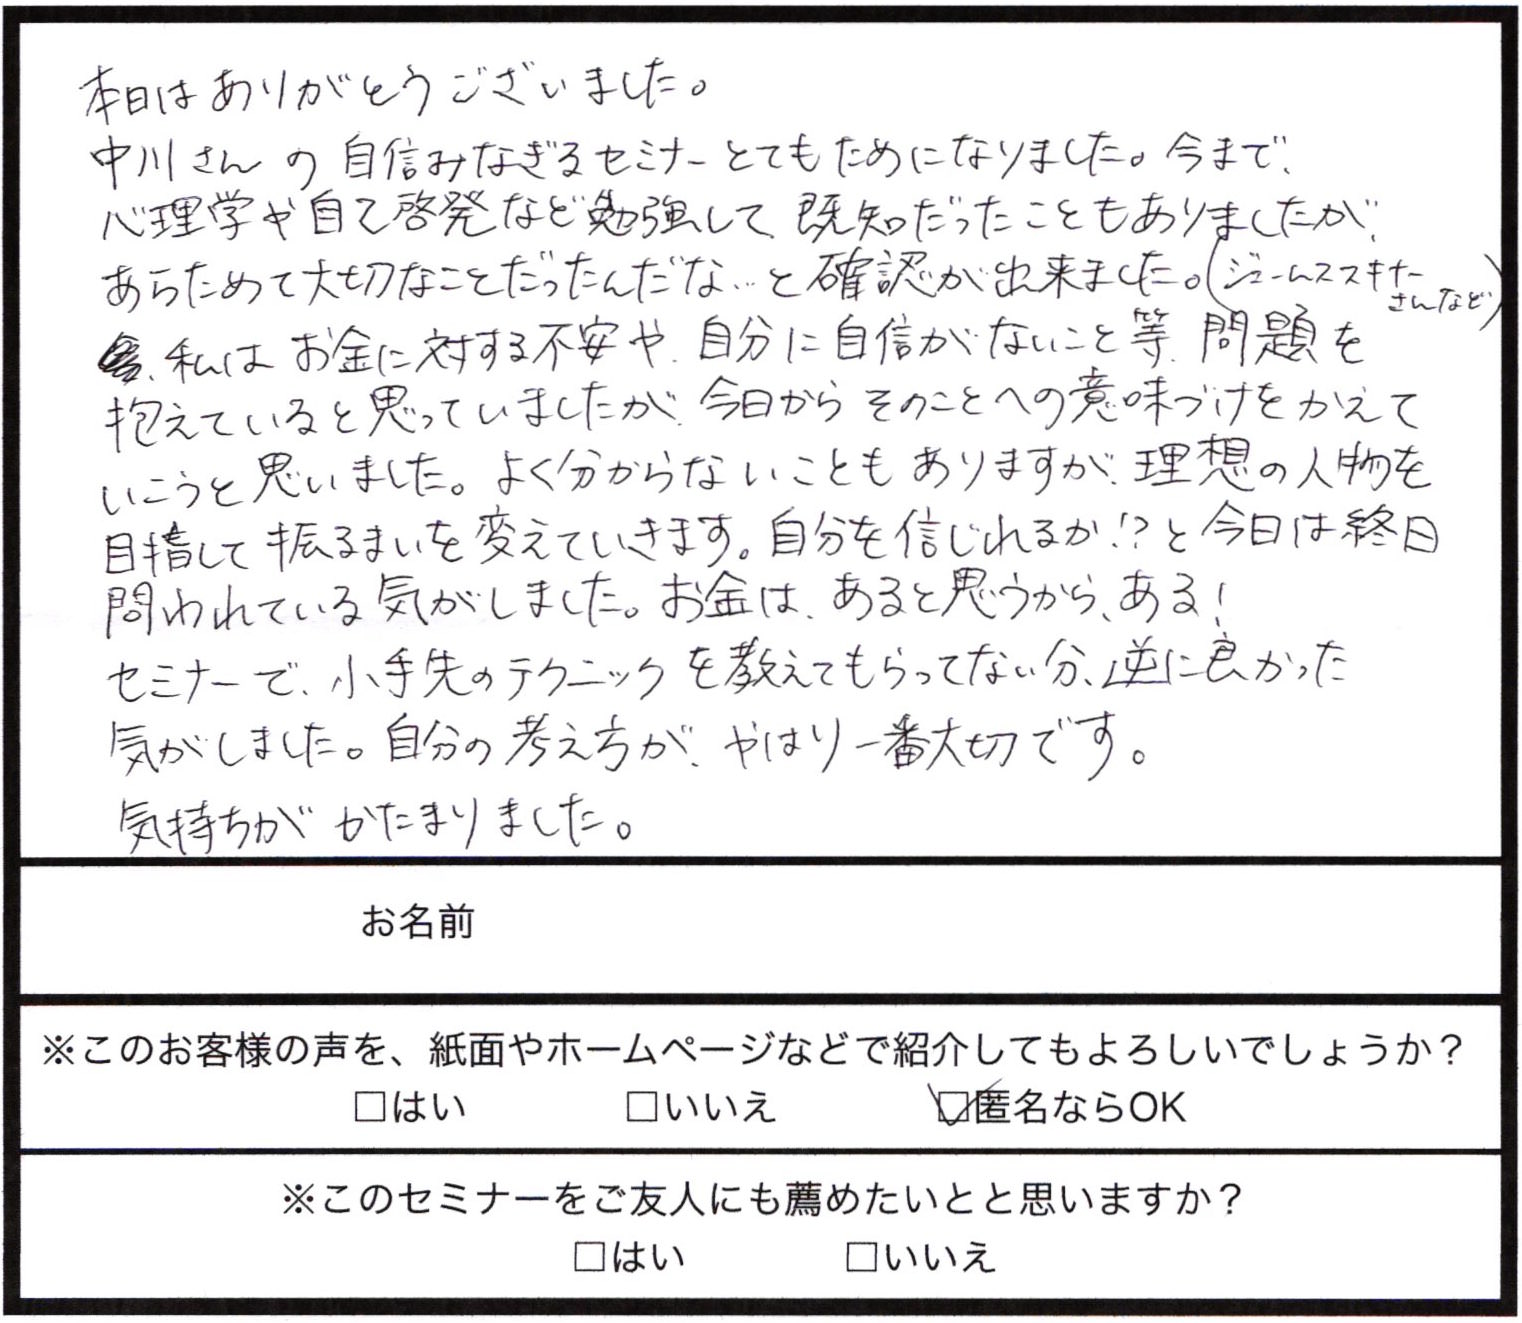 本日はありがとうございました。
中川さんの自信みなぎるセミナーとてもためになりました。今まで、
心理学や自己啓発など勉強して、既知だったこともありましたが、
あらためて大切なことだったんだな…と確認が出来ました。(ジェームススキナー
さんなど)
私はお金に対する不安や、自分に自信がないこと等、問題を
抱えていると思っていましたが、今日からそのことへの意味づけをかえて
いこうと思いました。よく分からないこともありますが、理想の人物を
目指して振るまいを変えていきます。自分を信じれるか!?と今日は終日
問われている気がしました。お金は、あると思うから、ある!
セミナーで、小手先のテクニックを教えてもらってない分、逆に良かった
気がしました。自分の考え方が、やはり一番大切です。
気持ちがかたまりました。
お名前
※このお客様の声を、紙面やホームページなどで紹介してもよろしいでしょうか?
□はい □いいえ ☑匿名ならOK
※このセミナーをご友人にも薦めたいとと思いますか?
□はい □いいえ